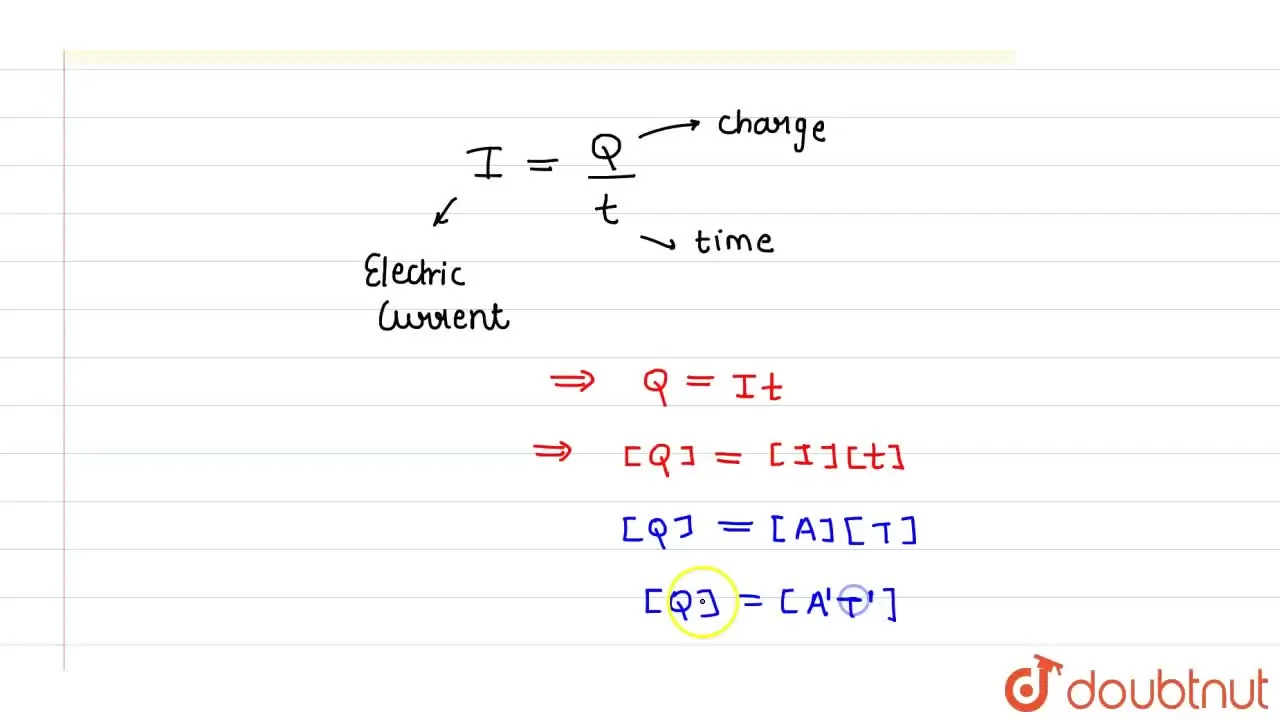 I = Q/t
charge
time
Electric
Current
⇒ Q = It
⇒ [Q] = [I][t]
[Q] = [A][T]
[Q] = [A¹T¹]
doubtnut